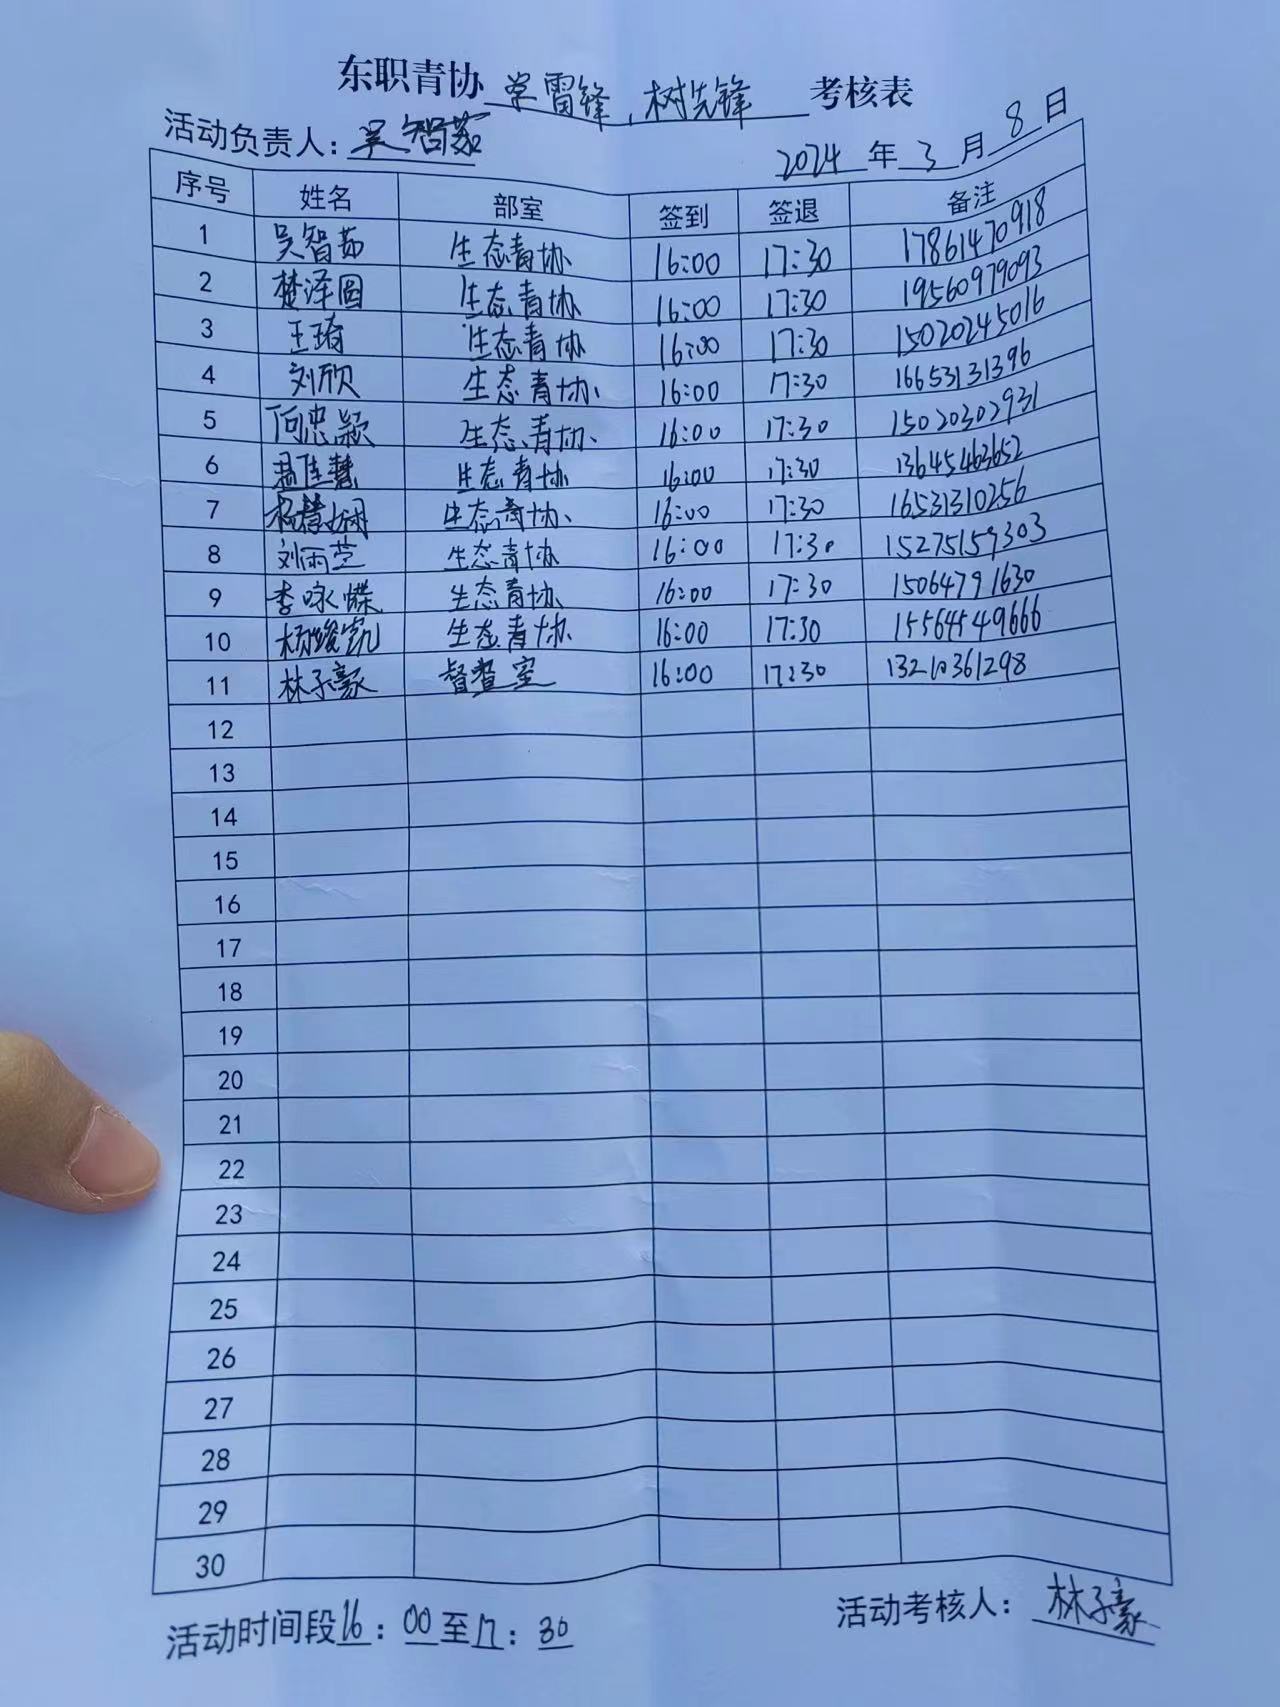 东职青协 学雷锋，树先锋 考核表
活动负责人：吴智茹
2024 年 3 月 8 日
序号 姓名 部室 签到 签退 备注
1 吴智茹 生态青协 16:00 17:30 17861470918
2 楚泽圆 生态青协 16:00 17:30 19560979093
3 王琦 生态青协 16:00 17:30 15020245016
4 刘欣 生态青协 16:00 17:30 16653131396
5 何忠颖 生态青协 16:00 17:30 15020302931
6 生态青协 16:00 17:30 13645463652
7 生态青协 16:00 17:30 16531310256
8 刘雨芝 生态青协 16:00 17:30 15275159303
9 李咏蝶 生态青协 16:00 17:30 15064791630
10 生态青协 16:00 17:30 15564549666
11 林子豪 督查室 16:00 17:30 13210361298
12
13
14
15
16
17
18
19
20
21
22
23
24
25
26
27
28
29
30
活动时间段16：00至17：30
活动考核人：林子豪